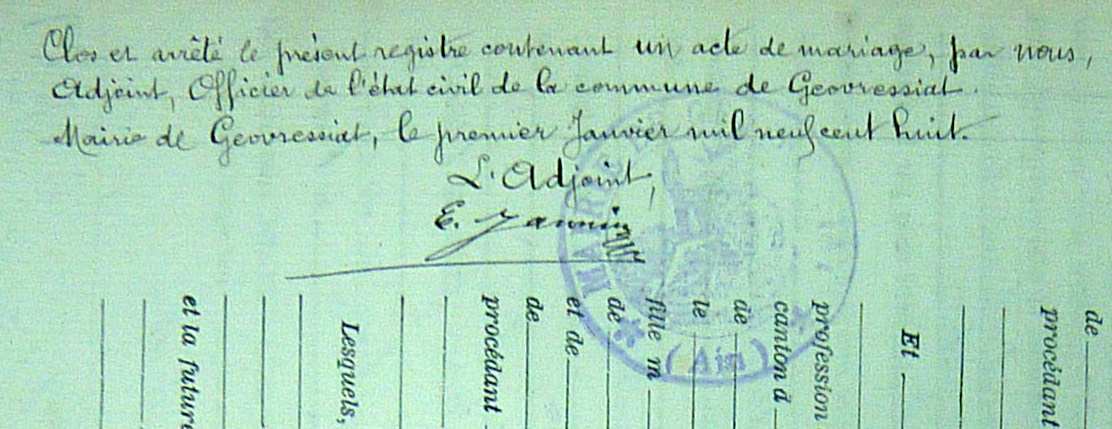 Clos et arrêté le présent registre contenant un acte de mariage, par nous,
Adjoint, Officier de l'état civil de la commune de Geovressiat.
Mairie de Geovressiat, le premier Janvier mil neuf cent huit.
L'Adjoint,
E. Jannin
MAIRIE
(Ain)
de
procédant
Et
profession
canton d
de
le
fille m
de
et de
de
procédant
Lesquels,
et la future